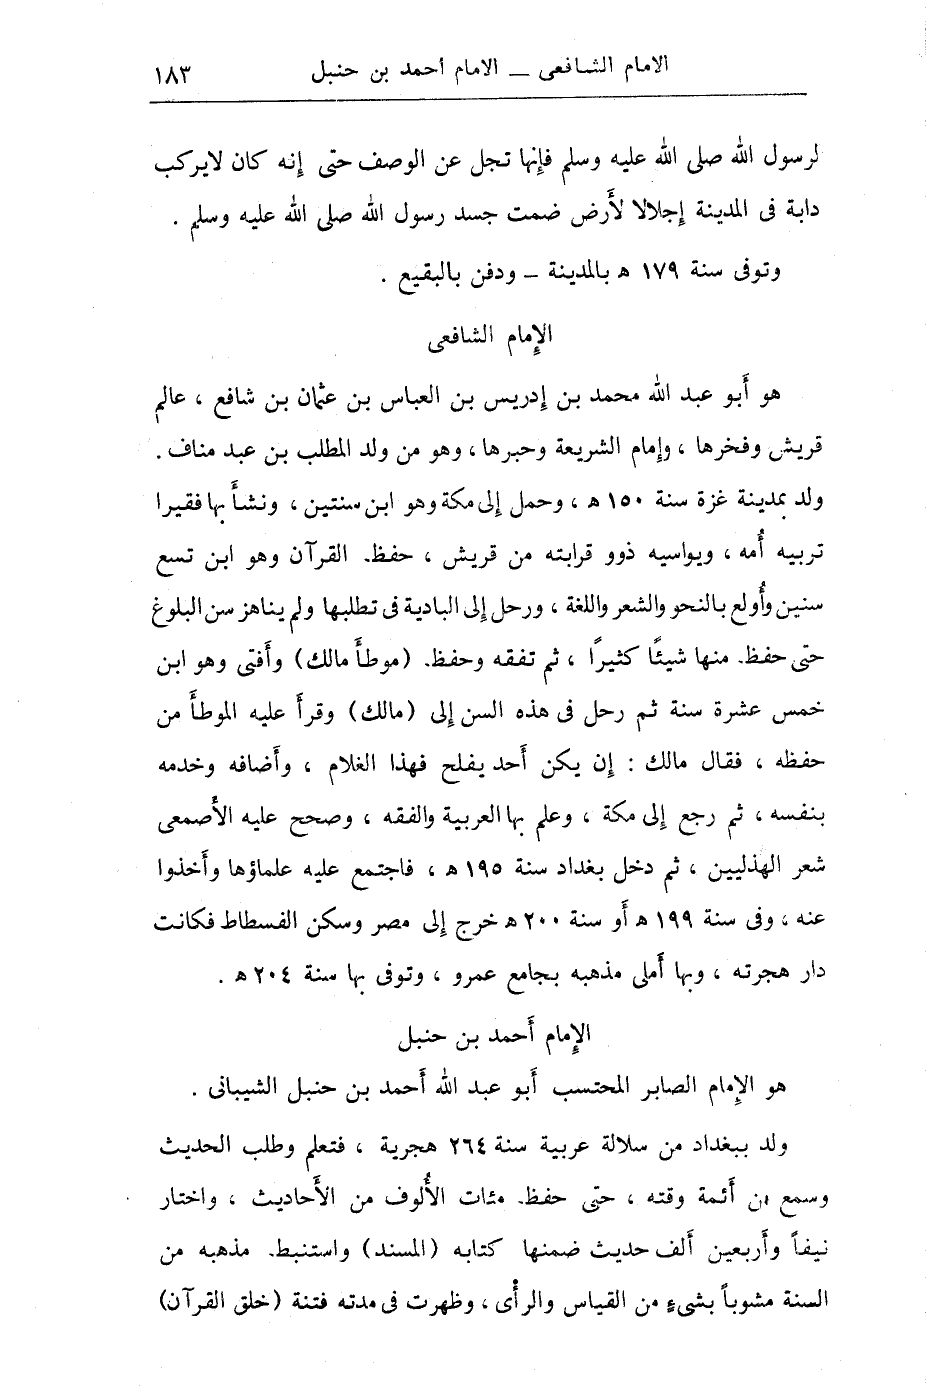 الامام الشافعى — الامام أحمد بن حنبل ١٨٣
لرسول الله صلى الله عليه وسلم فإنها تجل عن الوصف حتى إنه كان لايركب
دابة فى المدينة إجلالا لأرض ضمت جسد رسول الله صلى الله عليه وسلم .
وتوفى سنة ١٧٩ ه بالمدينة – ودفن بالبقيع .
الإمام الشافعى
هو أبو عبد الله محمد بن إدريس بن العباس بن عثمان بن شافع ، عالم
قريش وفخرها ، وإمام الشريعة وحبرها ، وهو من ولد المطلب بن عبد مناف .
ولد بمدينة غزة سنة ١٥٠ ه ، وحمل إلى مكة وهو ابن سنتين ، ونشأ بها فقيرا
تربيه أمه ، ويواسيه ذوو قرابته من قريش ، حفظ القرآن وهو ابن تسع
سنين وأولع بالنحو والشعر واللغة ، ورحل إلى البادية فى تطلبها ولم يناهز سن البلوغ
حتى حفظ منها شيئًا كثيرًا ، ثم تفقه وحفظ (موطأ مالك) وأفتى وهو ابن
خمس عشرة سنة ثم رحل فى هذه السن إلى (مالك) وقرأ عليه الموطأ من
حفظه ، فقال مالك : إن يكن أحد يفلح فهذا الغلام ، وأضافه وخدمه
بنفسه ، ثم رجع إلى مكة ، وعلم بها العربية والفقه ، وصحح عليه الأصمعى
شعر الهذليين ، ثم دخل بغداد سنة ١٩٥ ه ، فاجتمع عليه علماؤها وأخذوا
عنه ، وفى سنة ١٩٩ ه أو سنة ٢٠٠ ه خرج إلى مصر وسكن الفسطاط فكانت
دار هجرته ، وبها أملى مذهبه بجامع عمرو ، وتوفى بها سنة ٢٠٤ ه .
الإمام أحمد بن حنبل
هو الإمام الصابر المحتسب أبو عبد الله أحمد بن حنبل الشيبانى .
ولد ببغداد من سلالة عربية سنة ٢٦٤ هجرية ، فتعلم وطلب الحديث
وسمع من أئمة وقته ، حتى حفظ مئات الألوف من الأحاديث ، واختار
نيفاً وأربعين ألف حديث ضمنها كتابه (المسند) واستنبط مذهبه من
السنة مشوباً بشىء من القياس والرأى ، وظهرت فى مدته فتنة (خلق القرآن)